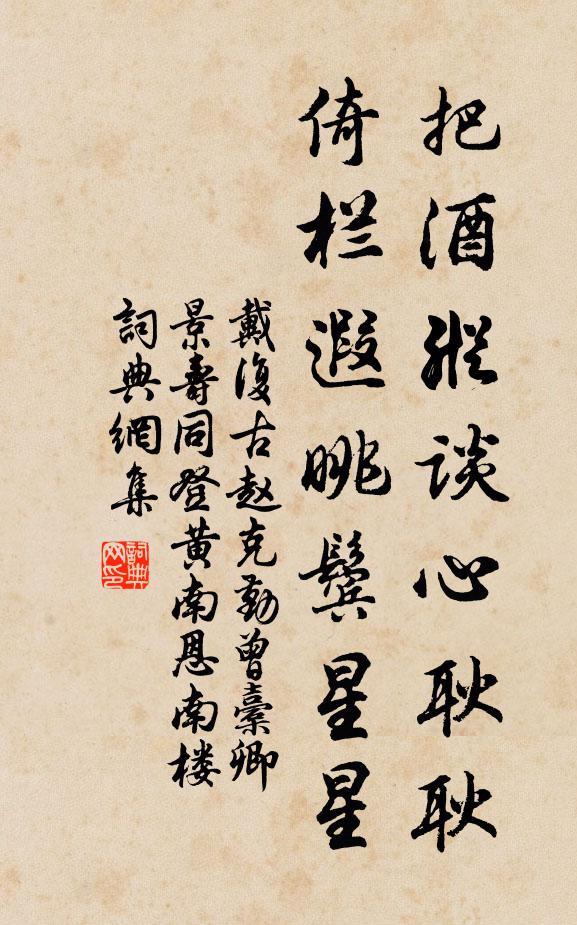 把酒纵谈心耿耿
倚栏遐眺鬓星星
戴復古赵克勤曾橐卿
景壽同登黄南恩南楼
詞典網集
詞典
网印